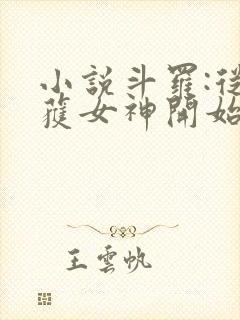 小說斗羅:從
獲女神開始
王雲帆